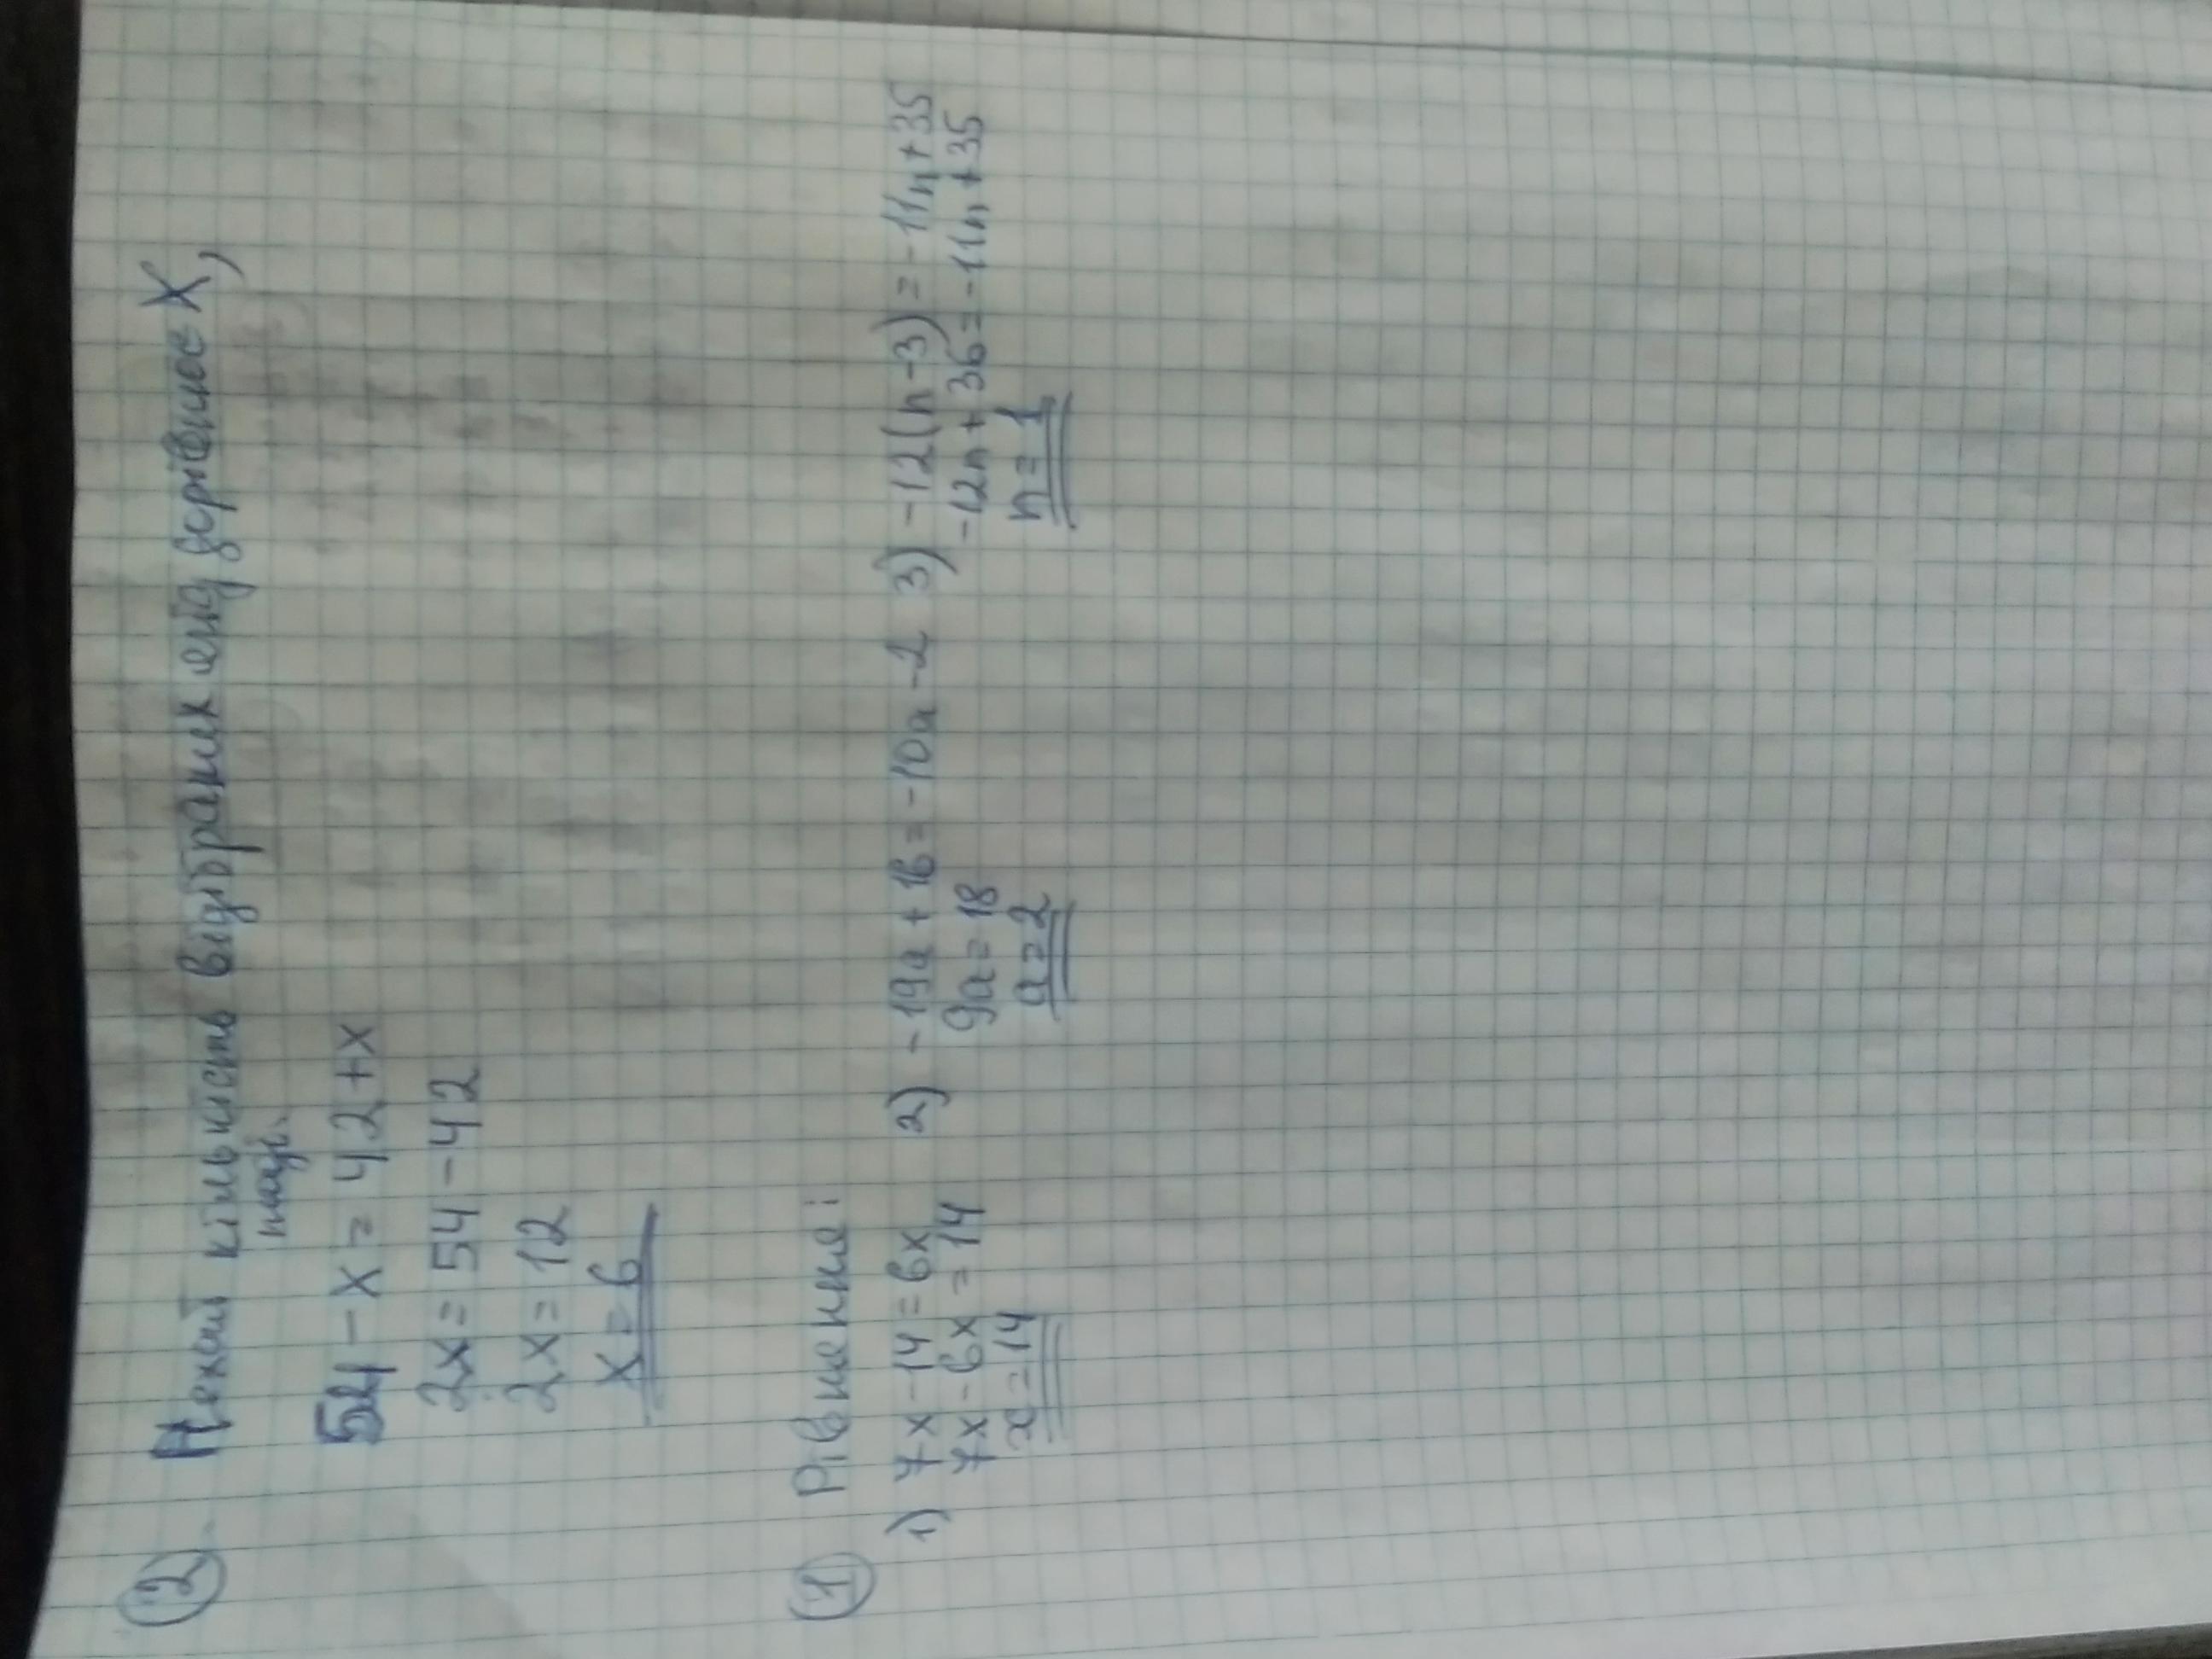 2 Нехай кількість відібраних яг дорівнює X,
54 - x = 42 + x
2x = 54 - 42
2x = 12
x = 6
1 Рівняння:
1) 7x - 14 = 6x 2) - 19a + 16 = -10a - 2 3) -12(n - 3) = -11n + 35
7x - 6x = 14 9a = 18 -12n + 36 = -11n + 35
x = 14 a = 2 n = 1